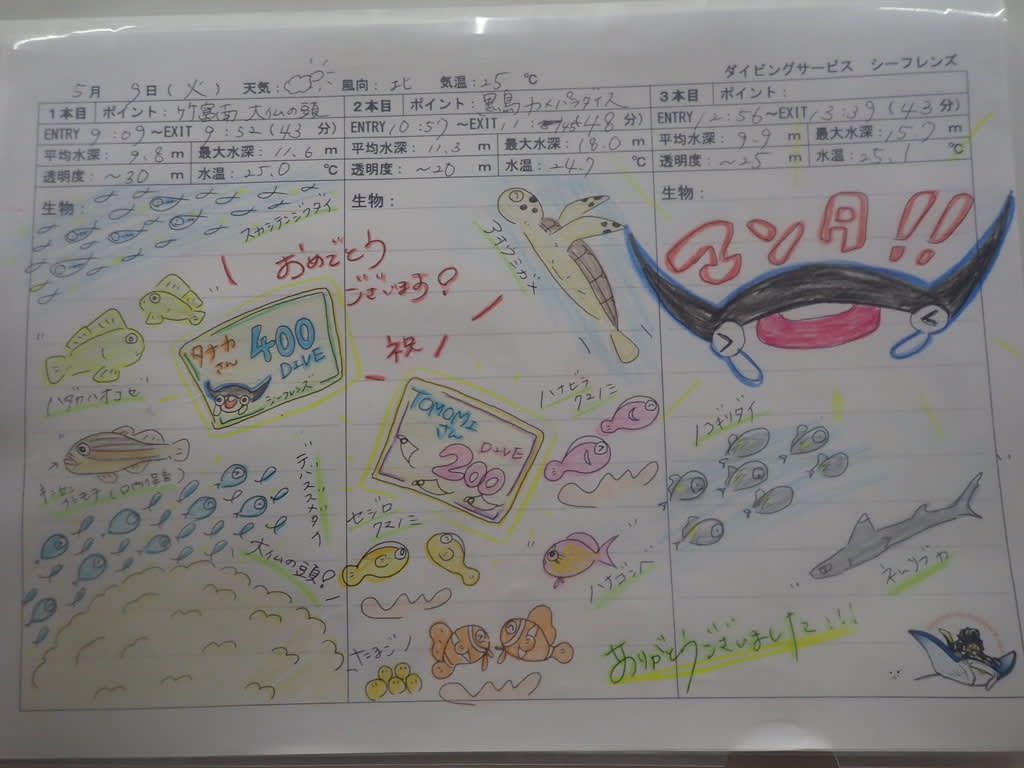 ダイビングサービス シーフレンズ
5月 9日(火) 天気: 風向:北 気温:25 ℃
1本目 ポイント:竹富南 大仏の頭
ENTRY 9:09～EXIT 9:52(43分)
平均水深:9.8 m 最大水深:11.6 m
透明度:～30 m 水温:25.0 ℃
生物:
スカシテンジクダイ
おめでとう
ございます!
祝
タナカ
さん
400
DIVE
シーフレンズ
ハダカハオコゼ
デバスズメダイ
大仏の頭!
2本目 ポイント:黒島カメパラダイス
ENTRY 10:57～EXIT 11:45(48分)
平均水深:11.3 m 最大水深:18.0 m
透明度:～20 m 水温:24.7 ℃
生物:
アオウミガメ
TOMOMI
さん
200
DIVE
ハナビラ
クマノミ
セジロ
クマノミ
ハナゴンベ
たまご!
3本目 ポイント:
ENTRY 12:56～EXIT 13:39(43分)
平均水深:9.9 m 最大水深:15.7 m
透明度:～25 m 水温:25.1 ℃
生物:
マンタ!!
ノコギリダイ
ネムリブカ
ありがとうございました!!!